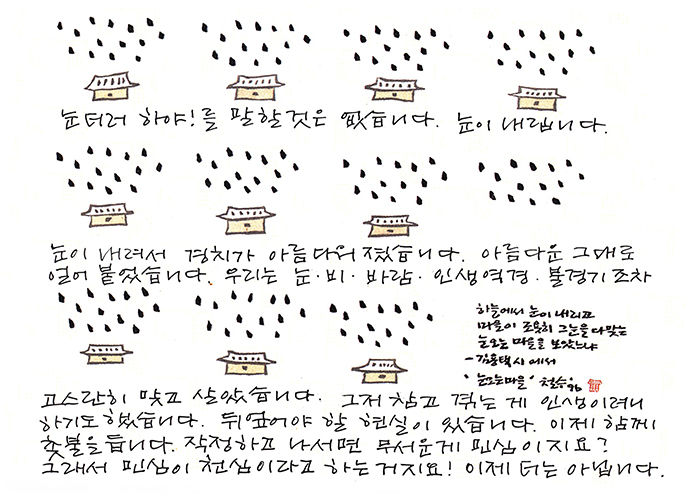 눈더러 하야!를 말할것은 없습니다. 눈이 내립니다.
눈이 내려서 경치가 아름다워졌습니다. 아름다운 그대로
얼어 붙었습니다. 우리는 눈·비·바람·인생역경·불경기조차
하늘에서 눈이 내리고
마을이 조용히 그 눈을 다 맞는
눈오는 마을을 보았느냐
- 김용택 시에서
'눈오는마을' 철수.
고스란히 맞고 살았습니다. 그저 참고 겪는 게 인생이려니
하기도 했습니다. 뒤엎어야 할 현실이 있습니다. 이제 함께
촛불을 듭니다. 작정하고 나서면 무서운게 민심이지요?
그래서 민심이 천심이라고 하는거지요! 이제 더는 아닙니다.